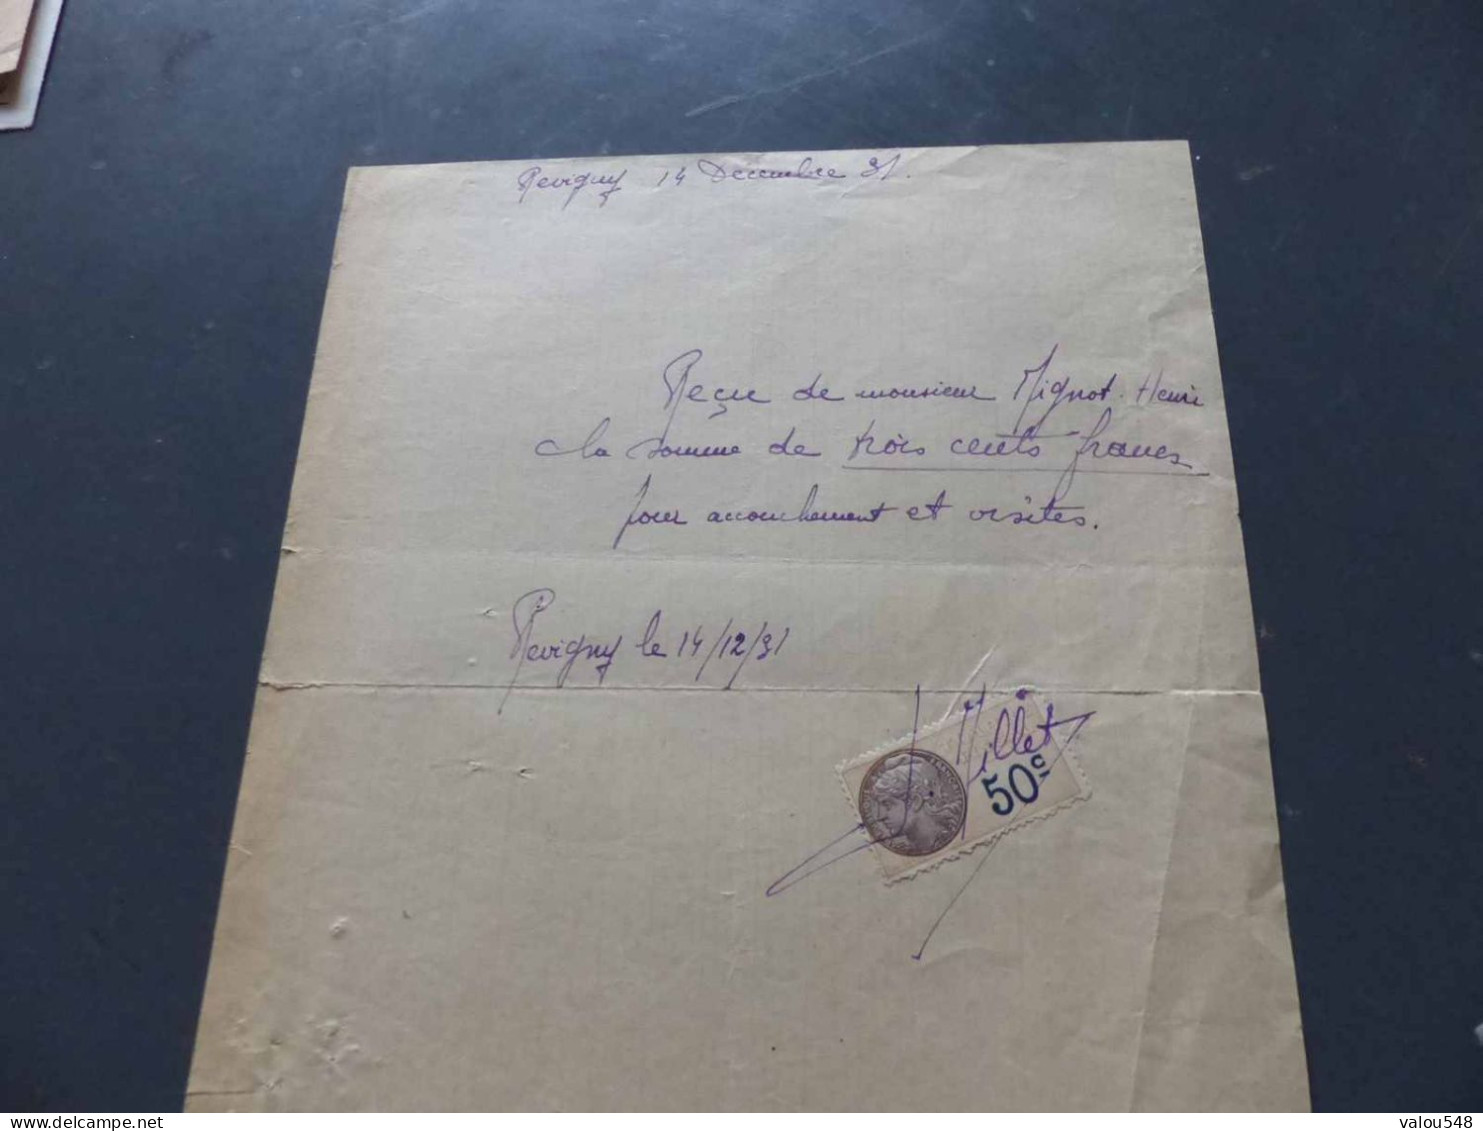 Revigny 14 Decembre 31.
Reçu de monsieur Mignot Henri
la somme de trois cents francs
pour accouchement et visites.
Revigny le 14/12/31
Millet
50c
valou548